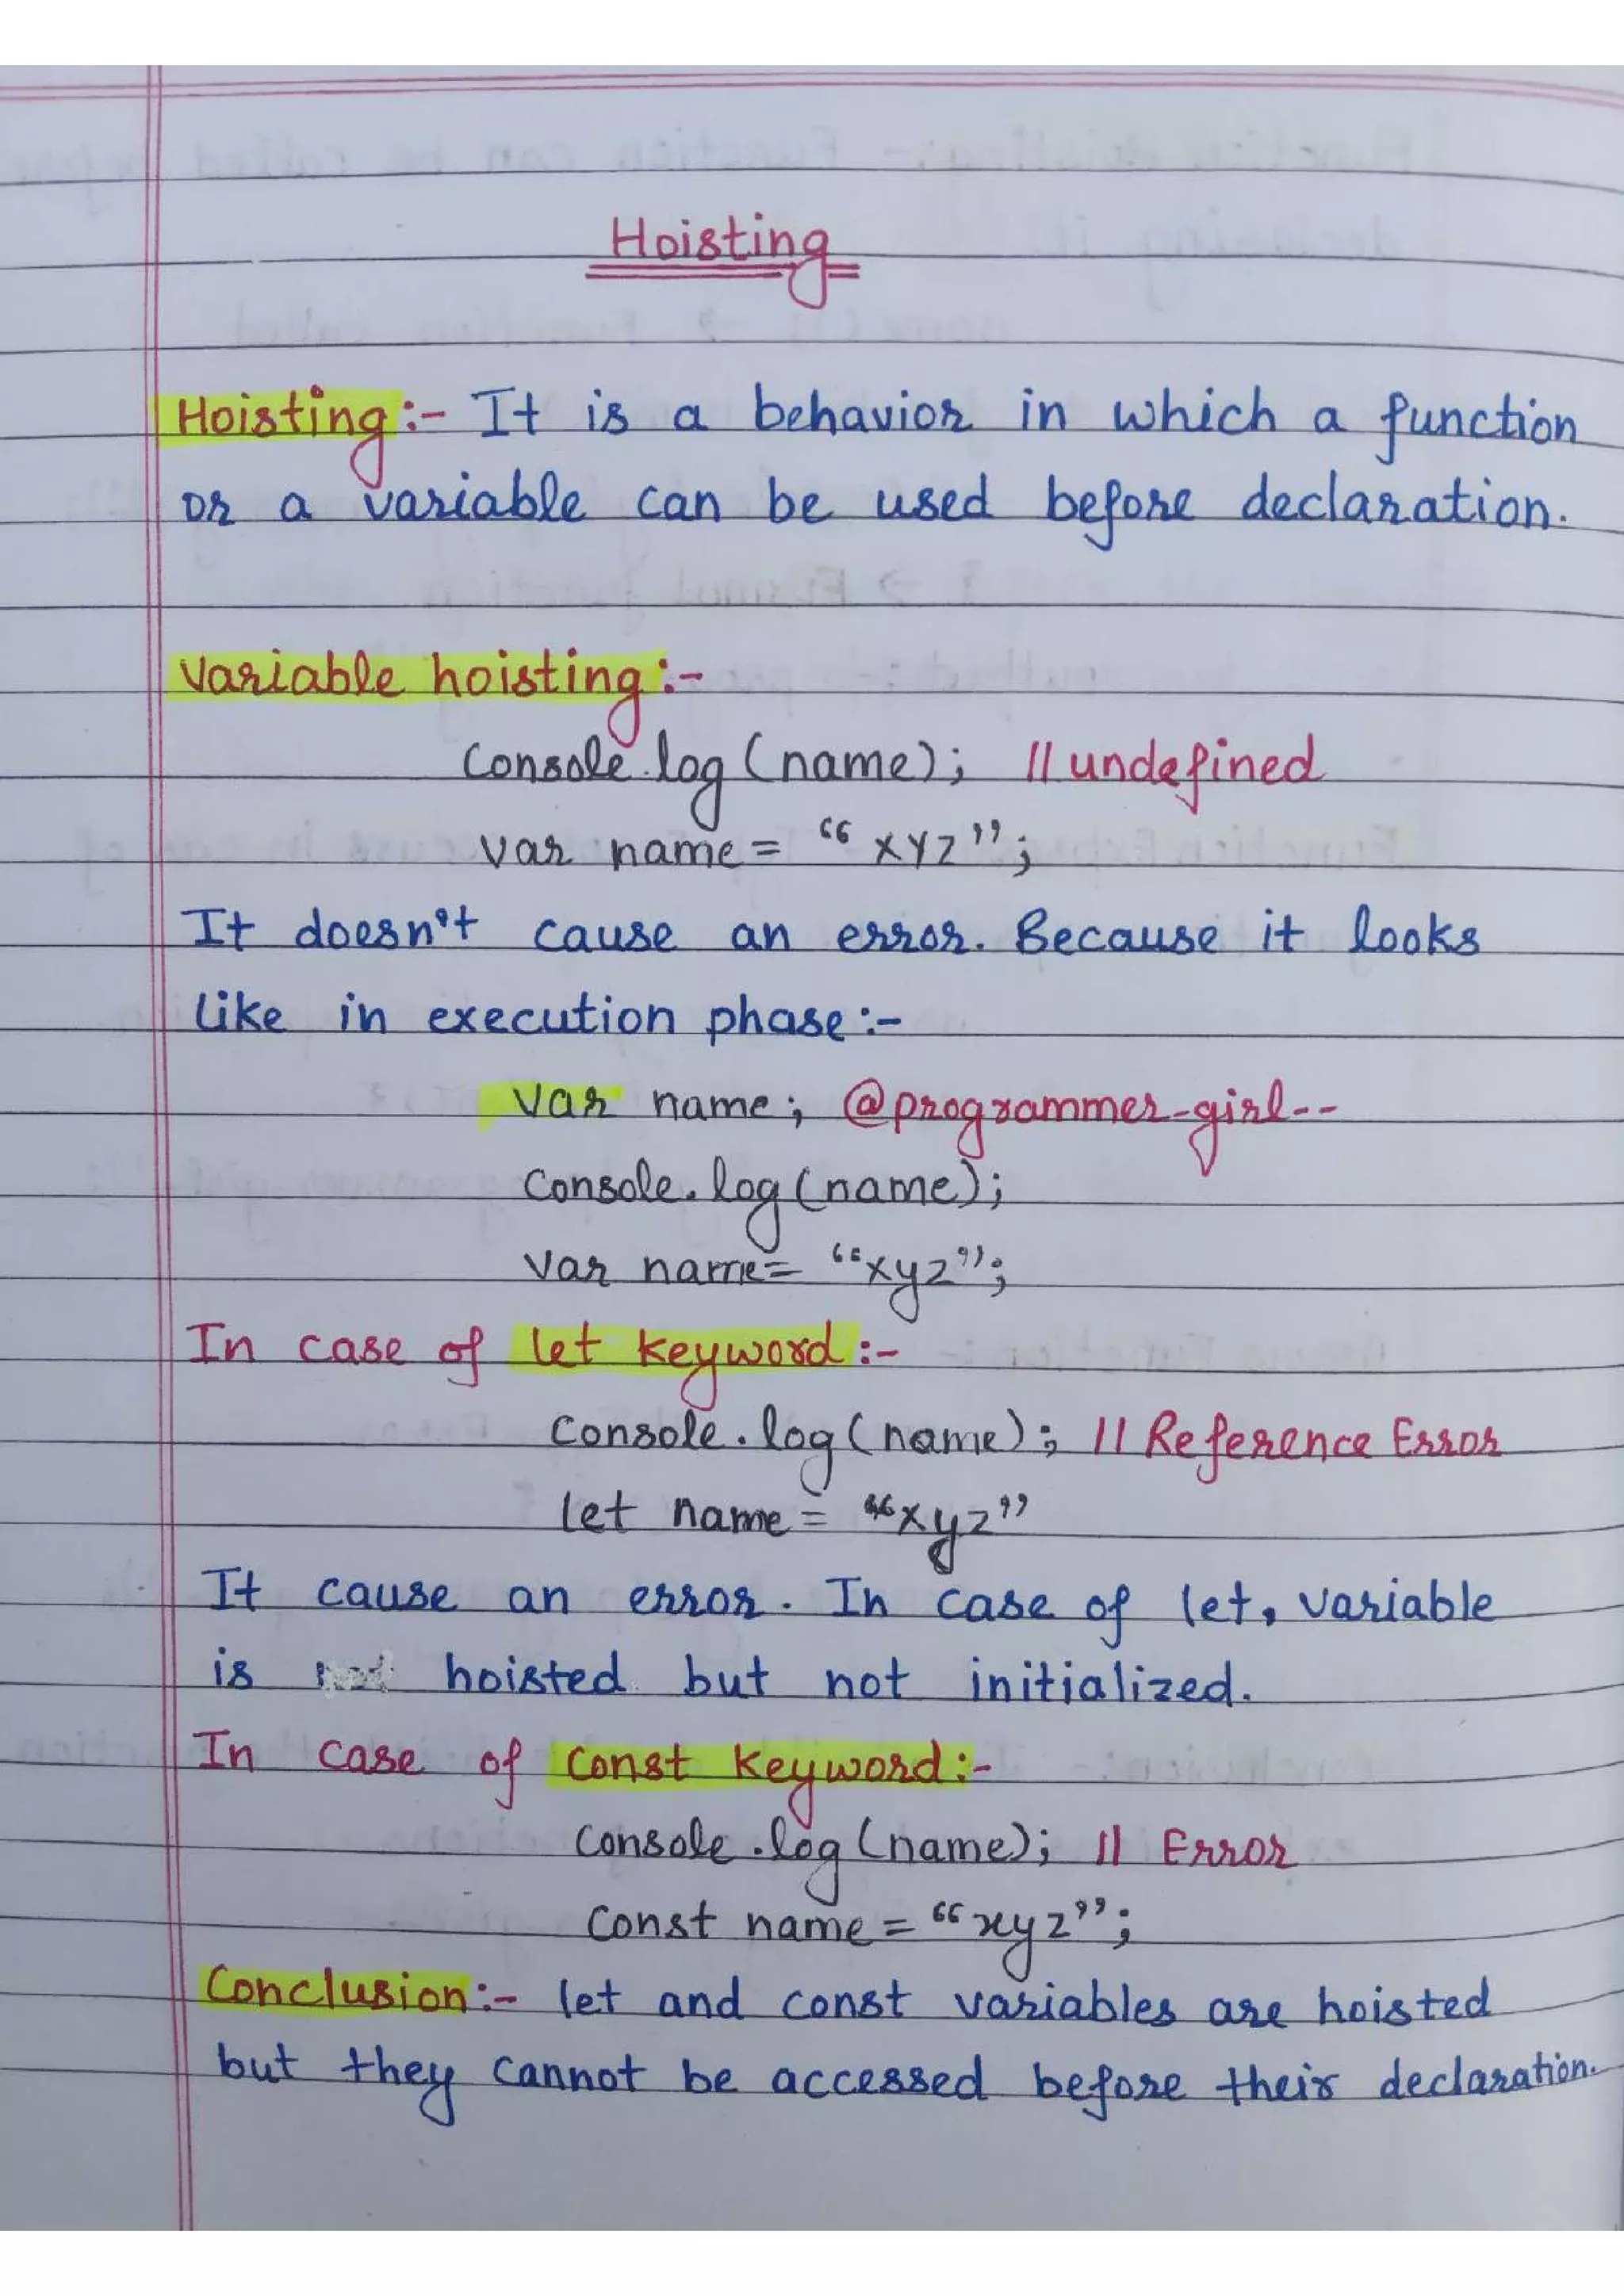 Hoisting
Hoisting:- It is a behavior in which a function
or a variable can be used before declaration.
Variable hoisting:-
Console.log(name); // undefined
var name = “XYZ”;
It doesn't cause an error. Because it looks
like in execution phase:-
var name; @programmer_girl--
Console.log(name);
var name= “xyz”;
In case of let keyword:-
Console.log(name); // Reference Error
let name = “xyz”
It cause an error. In case of let, variable
is hoisted but not initialized.
In case of Const keyword:-
Console.log(name); // Error
Const name = “xyz”;
Conclusion:- let and const variables are hoisted
but they cannot be accessed before their declaration.